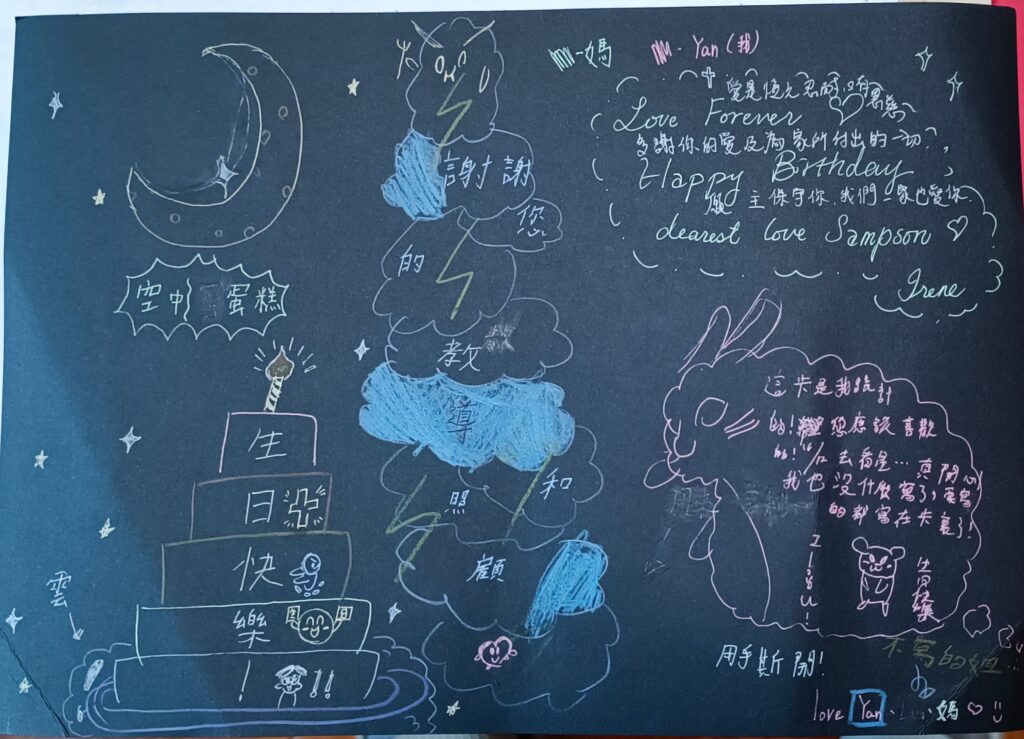 媽
Yan (我)
愛是恆久忍耐又有恩慈
Love Forever
多謝你的愛及為家所付出的一切
Happy Birthday
願主保守你,我們一家也愛你
dearest love Sampson
Irene
空中蛋糕
生
日
快
樂
! !!
雲
謝謝
您
的
教
導
和
照
顧
這卡是我設計
的! 想應該喜歡
真開心
我也沒什麼寫了,要寫
的都寫在卡裏了!
生日快樂
用手撕開!
不寫的姐...
love Yan、
媽